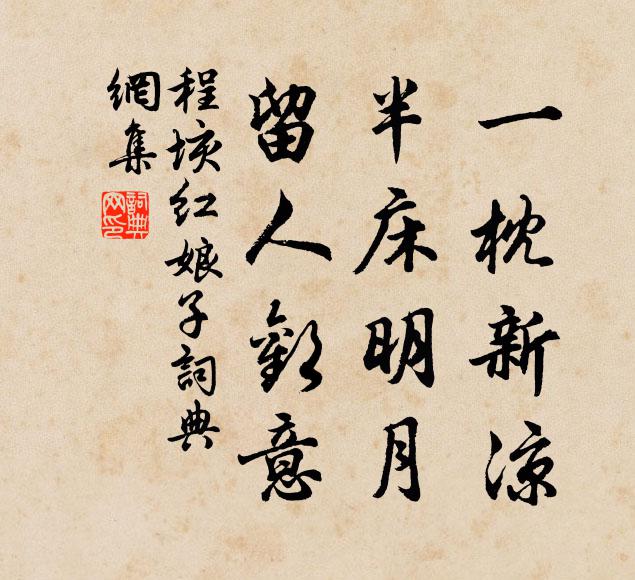 一枕新涼
半床明月
留人歡意
程垓紅娘子詞典
網集
詞典網印